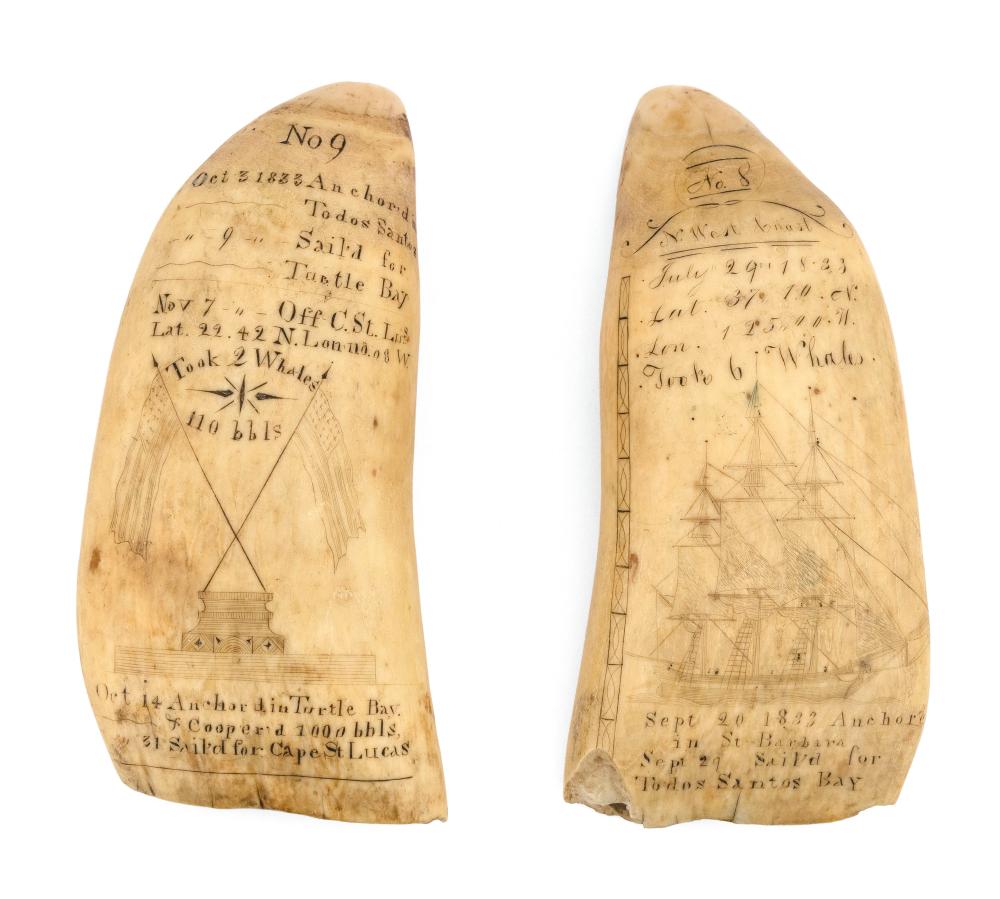 No 9
Oct 3 1833 Anchor'd in
Todos Santos
" 9 " Sail'd for
Turtle Bay
Nov 7 " Off C. St. Luc
Lat. 22.42 N. Lon 110.08 W
Took 2 Whales
110 bbls
Oct 14 Anchor'd in Turtle Bay.
& Cooper'd 1000 bbls,
31 Sail'd for Cape St Lucas
No. 8
N. West Coast
July 29 1833
Lat. 37.10 N.
Lon. W.
Took 6 Whales.
Sept 20 1833 Anchor'd
in St Barbara
Sept 29 Sail'd for
Todos Santos Bay